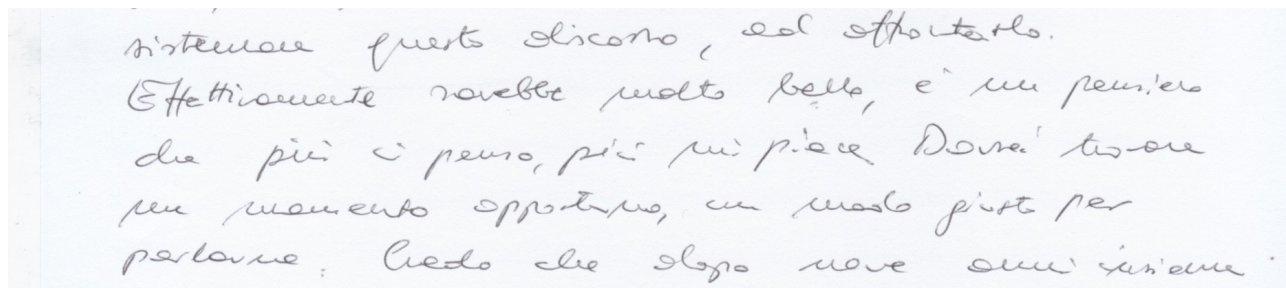 sistemare questo discorso, ed affrontarlo.
Effettivamente sarebbe molto bello, è un pensiero
che più ci penso, più mi piace. Dovrei trovare
un momento opportuno, un modo giusto per
parlarne. Credo che dopo nove anni insieme